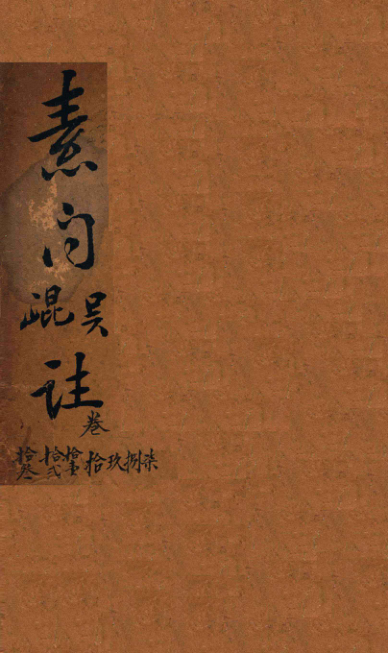 素问
吴崐
註
卷
柒捌玖拾拾壹拾弍拾叁